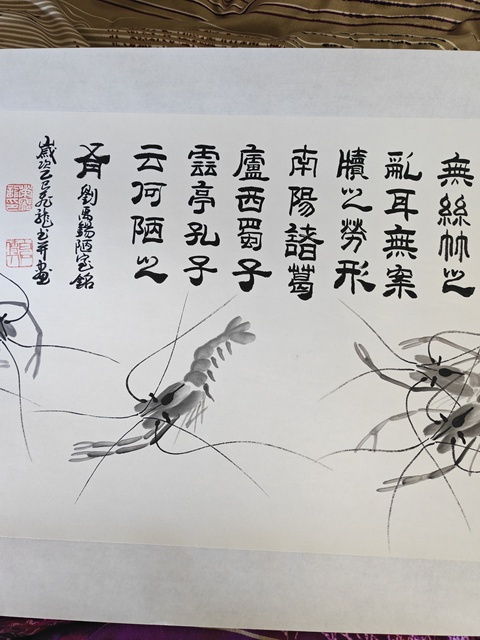 無絲竹之
亂耳無案
牘之勞形
南陽諸葛
廬西蜀子
雲亭孔子
云何陋之
有 劉禹錫陋室銘
歲次乙巳龍書并畫